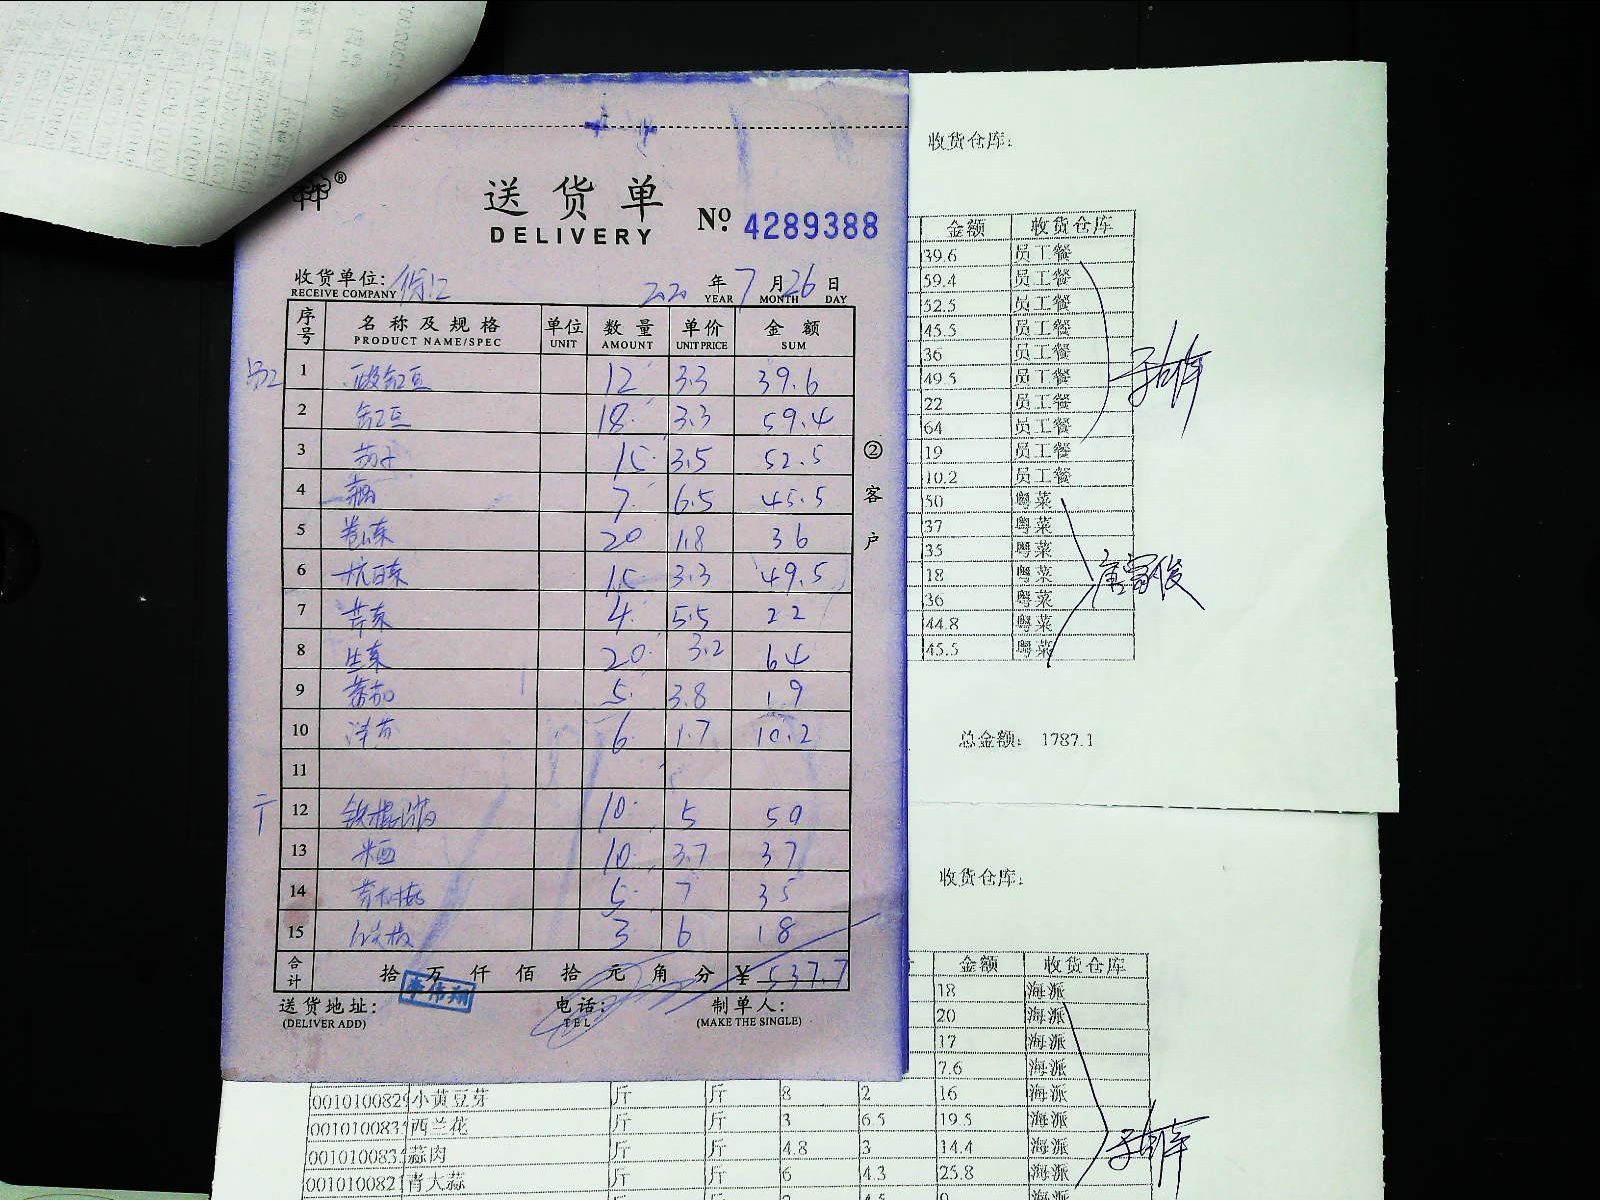 送货单
DELIVERY
№ 4289388
收货单位: 徐汇 2020 年 7 月 26 日
RECEIVE COMPANY YEAR MONTH DAY
序号 名称及规格 单位 数量 单价 金额
PRODUCT NAME/SPEC UNIT AMOUNT UNIT PRICE SUM
1 豇豆 12 3.3 39.6
2 豇豆 18 3.3 59.4
3 茄子 15 3.5 52.5
4 7 6.5 45.5
5 卷心菜 20 1.8 36
6 杭白菜 15 3.3 49.5
7 芹菜 4 5.5 22
8 生菜 20 3.2 64
9 番茄 5 3.8 19
10 洋芋 6 1.7 10.2
11
12 铁棍山药 10 5 50
13 米苋 10 3.7 37
14 5 7 35
15 3 6 18
合计 拾 万 仟 佰 拾 元 角 分 ¥ 537.7
李伟翔
送货地址: 电话: 制单人:
(DELIVER ADD) TEL (MAKE THE SINGLE)
② 客户
收货仓库:
金额 收货仓库
39.6 员工餐
59.4 员工餐
52.5 员工餐
45.5 员工餐
36 员工餐
49.5 员工餐
22 员工餐
64 员工餐
19 员工餐
10.2 员工餐
50 粤菜
37 粤菜
35 粤菜
18 粤菜
36 粤菜
44.8 粤菜
45.5 粤菜
总金额: 1787.1
收货仓库:
金额 收货仓库
18 海派
20 海派
17 海派
7.6 海派
0010100829 小黄豆芽 斤 斤 8 2 16 海派
001010083 西兰花 斤 斤 3 6.5 19.5 海派
001010083 蒜肉 斤 斤 4.8 3 14.4 海派
001010082 青大蒜 斤 斤 6 4.3 25.8 海派